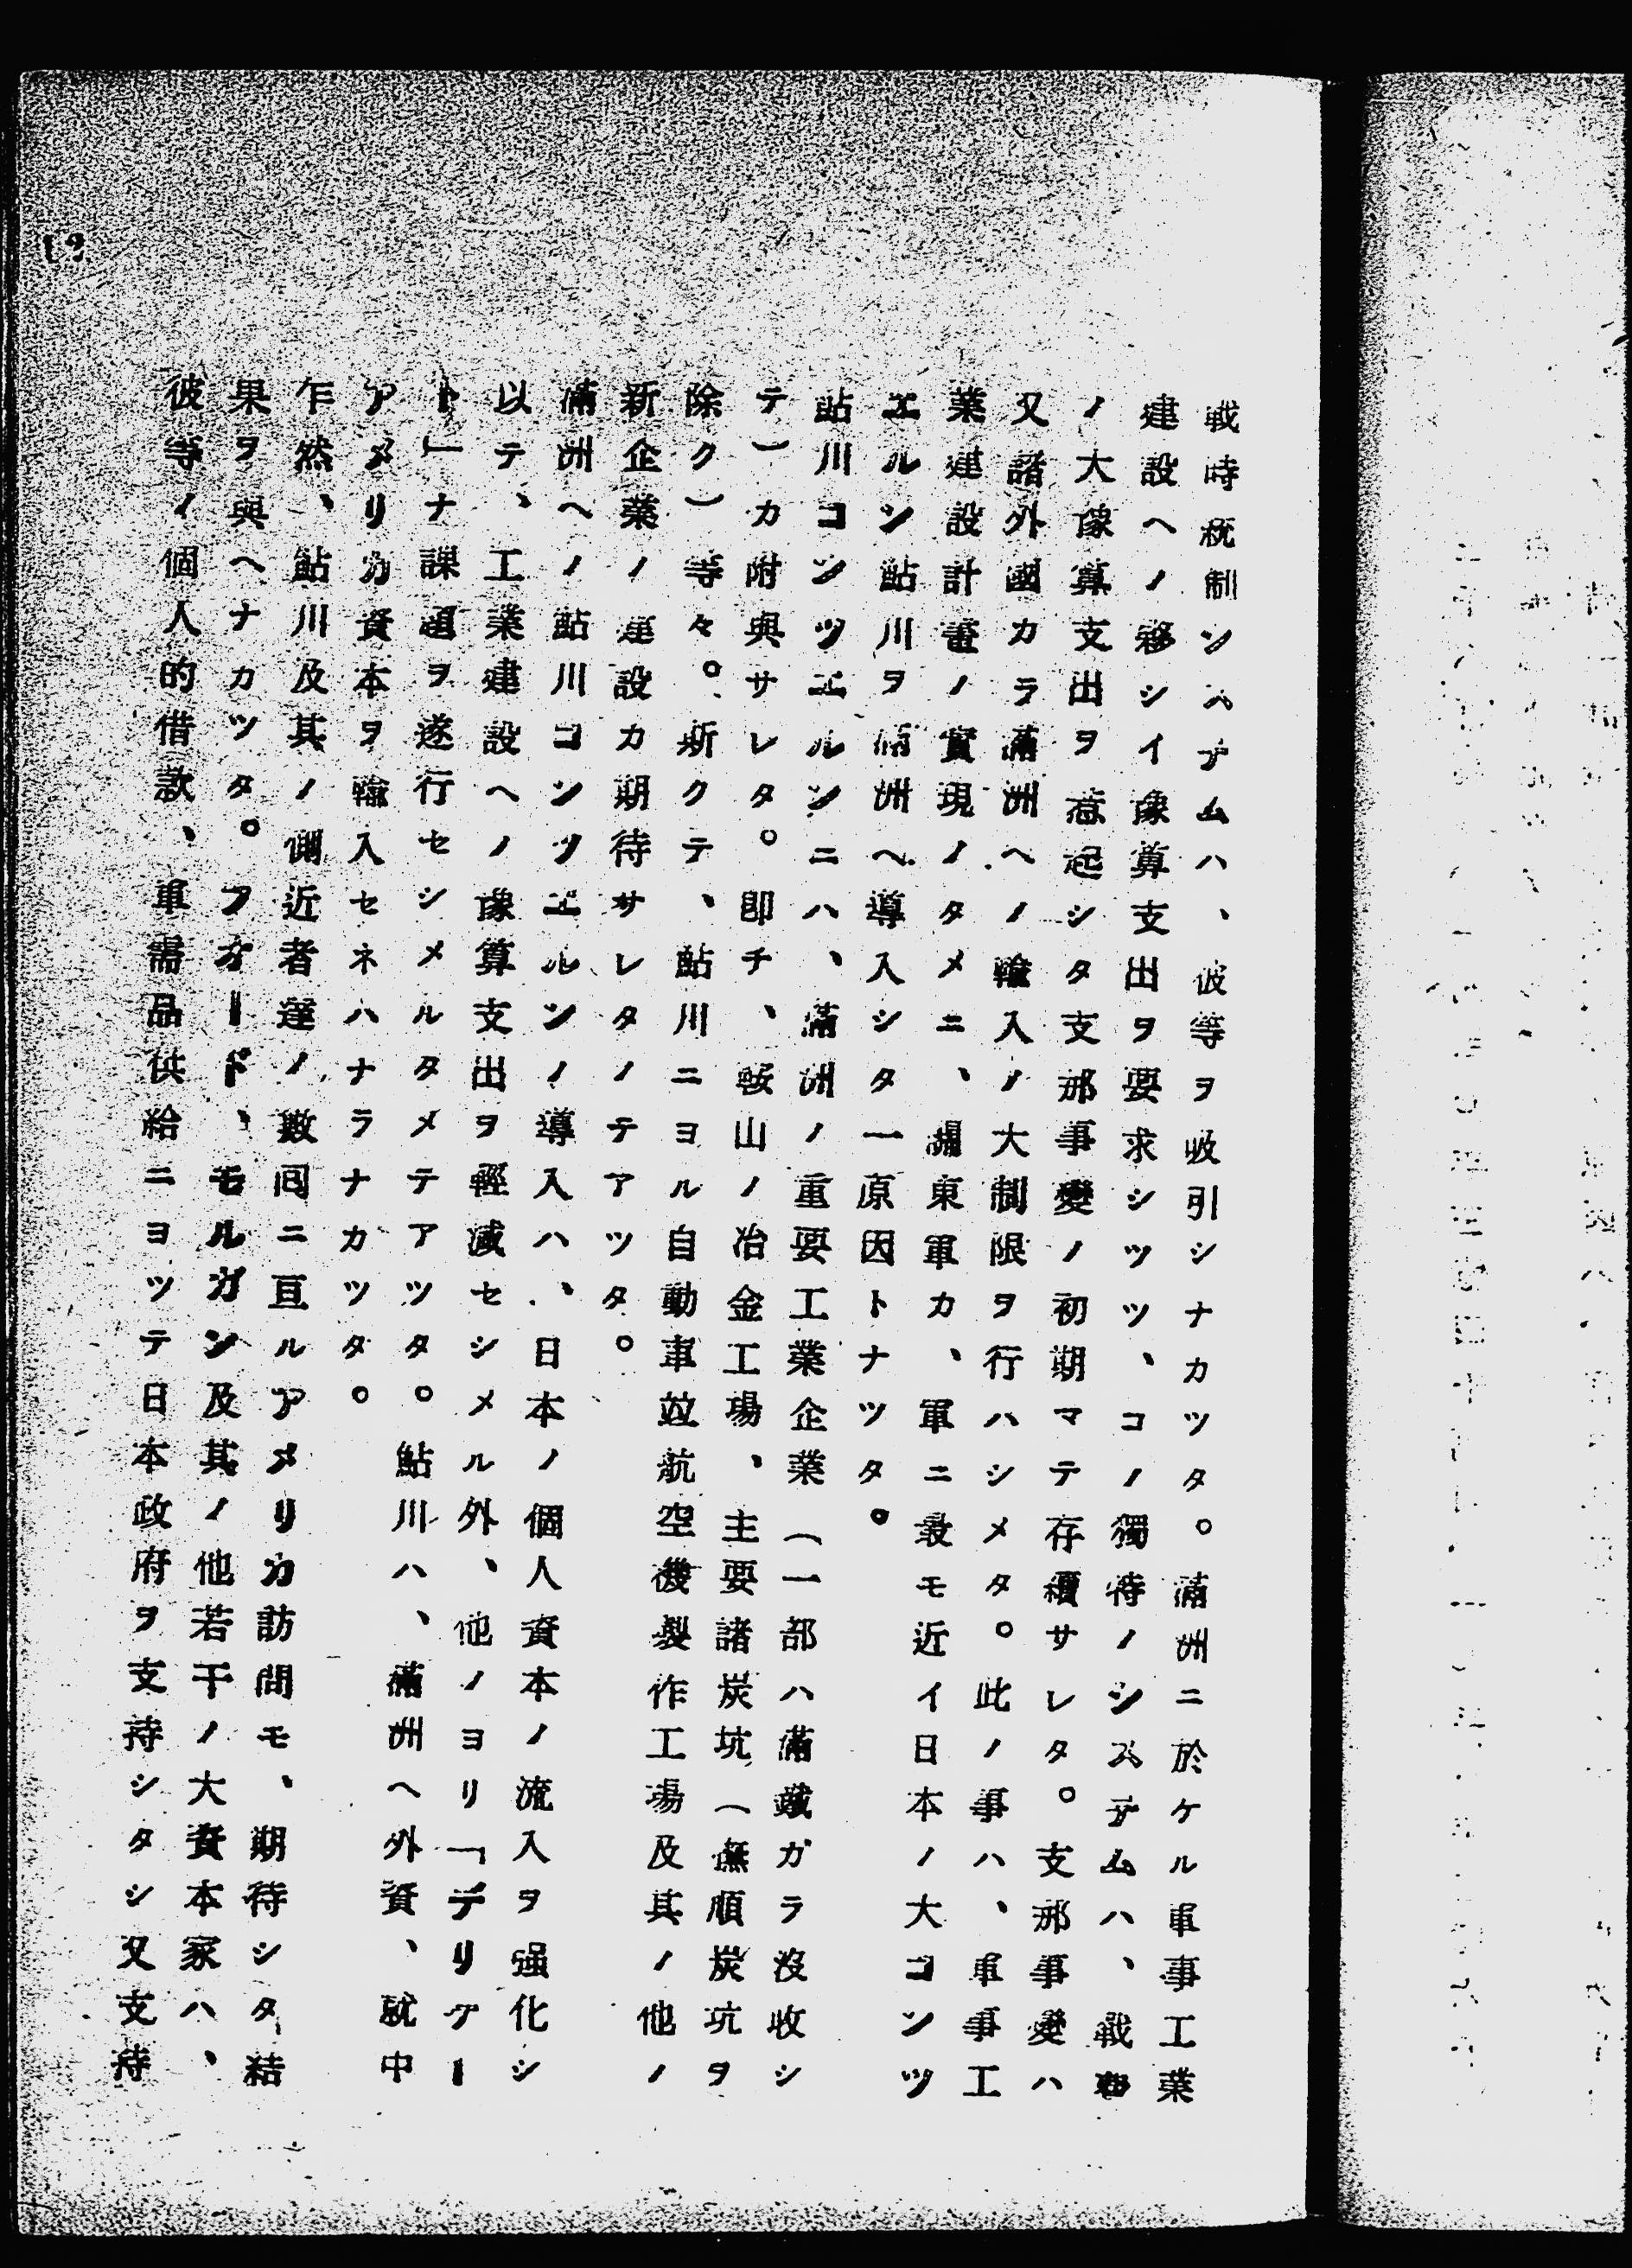 戰時統制システムハ、彼等ヲ吸引シナカツタ。滿洲ニ於ケル軍事工業
建設ヘノ移シイ豫算支出ヲ要求シツツ、コノ獨特ノシステムハ、戰爭
ノ大豫算支出ヲ惹起シタ支那事變ノ初期マテ存續サレタ。支那事變ハ
又諸外國カラ滿洲ヘノ輸入ノ大制限ヲ行ハシメタ。此ノ事ハ、軍事工
業建設計畫ノ實現ノタメニ、關東軍カ、軍ニ最モ近イ日本ノ大コンツ
エルン鮎川ヲ滿洲ヘ導入シタ一原因トナツタ。
鮎川コンツエルンニハ、滿洲ノ重要工業企業（一部ハ滿鐵ガラ沒收シ
テ）カ附與サレタ。即チ、鞍山ノ冶金工場、主要諸炭坑（撫順炭坑ヲ
除ク）等々。斯クテ、鮎川ニヨル自動車竝航空機製作工場及其ノ他ノ
新企業ノ建設カ期待サレタノテアツタ。
滿洲ヘノ鮎川コンツエルンノ導入ハ、日本ノ個人資本ノ流入ヲ强化シ
以テ、工業建設ヘノ豫算支出ヲ輕減セシメル外、他ノヨリ「デリケー
ト」ナ課題ヲ遂行セシメルタメテアツタ。鮎川ハ、滿洲ヘ外資、就中
アメリカ資本ヲ輸入セネハナラナカツタ。
乍然、鮎川及其ノ側近者達ノ數囘ニ亘ルアメリカ訪問モ、期待シタ結
果ヲ與ヘナカツタ。フオード、モルガン及其ノ他若干ノ大資本家ハ、
彼等ノ個人的借款、軍需品供給ニヨツテ日本政府ヲ支持シタシ又支持